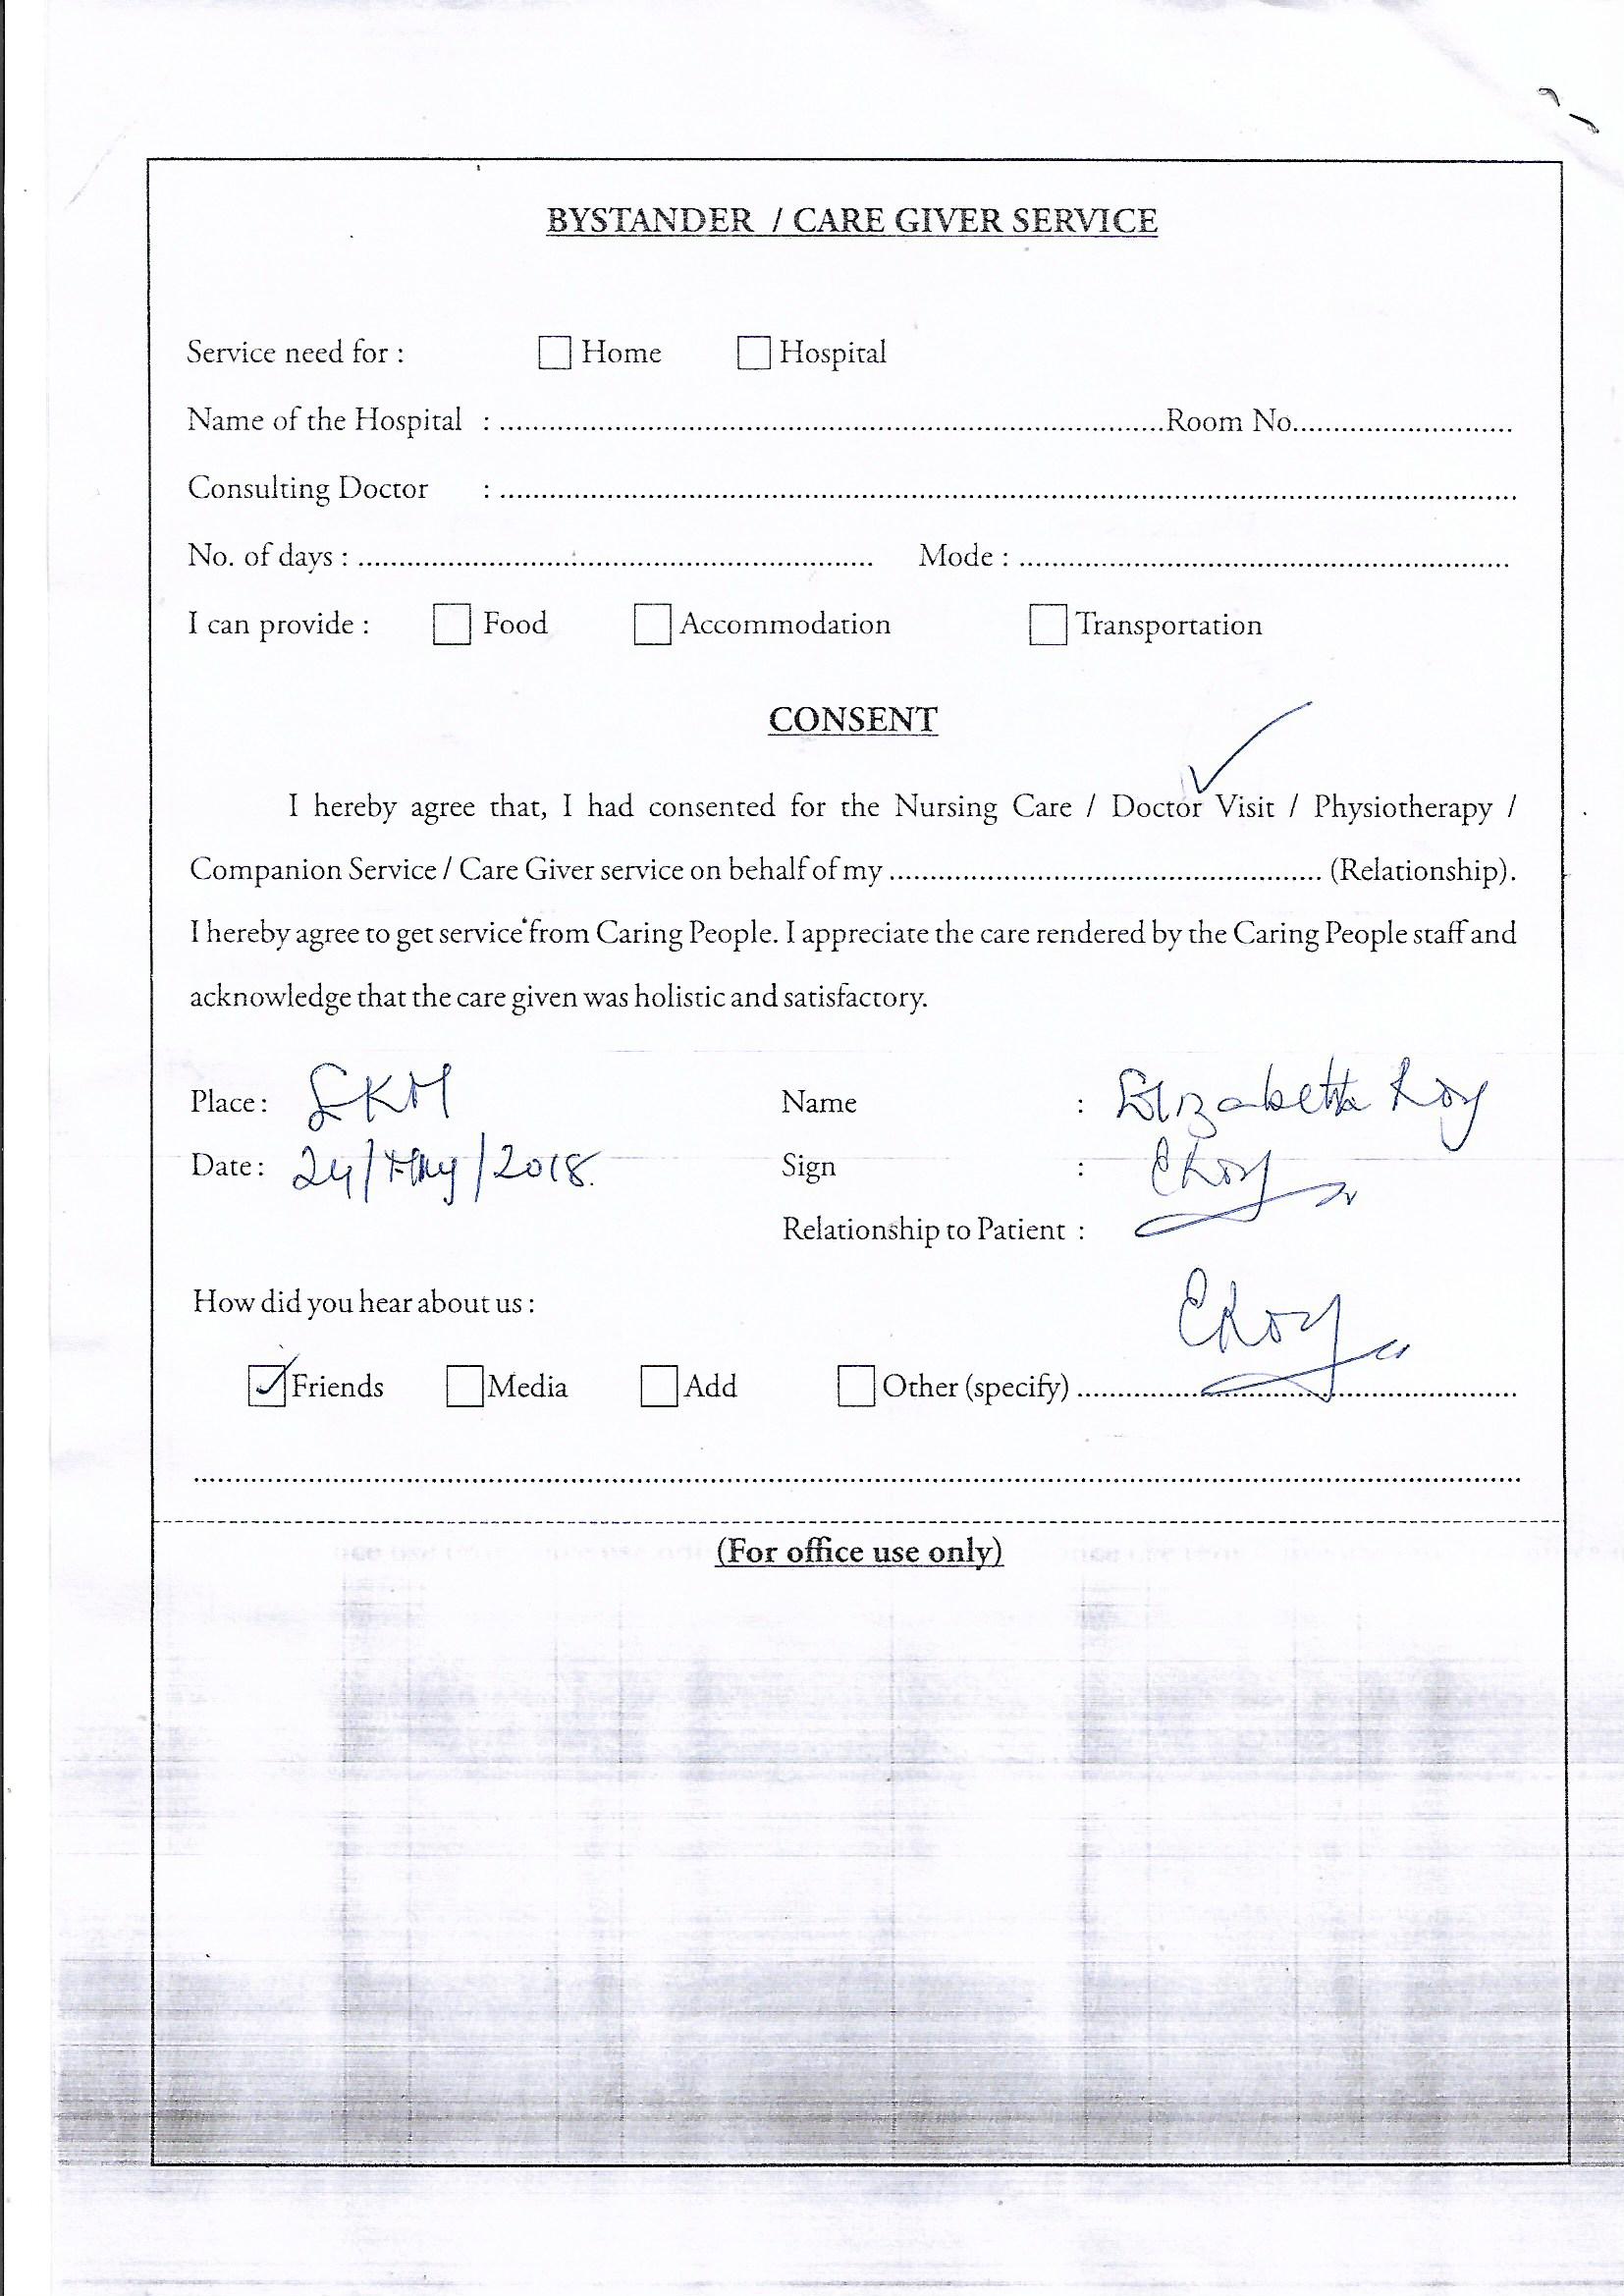 BYSTANDER / CARE GIVER SERVICE
Service need for : Home Hospital
Name of the Hospital : ........................................ Room No..........................
Consulting Doctor : ........................................
No. of days : ........................................ Mode : ........................................
I can provide : Food Accommodation Transportation
CONSENT
I hereby agree that, I had consented for the Nursing Care / Doctor Visit / Physiotherapy /
Companion Service / Care Giver service on behalf of my ........................................ (Relationship).
I hereby agree to get service from Caring People. I appreciate the care rendered by the Caring People staff and
acknowledge that the care given was holistic and satisfactory.
Place : Name : Elizabeth Roy
Date : 24/May/2018. Sign : ERoy
Relationship to Patient :
How did you hear about us : ERoy
✓ Friends Media Add Other (specify) ........................................
(For office use only)